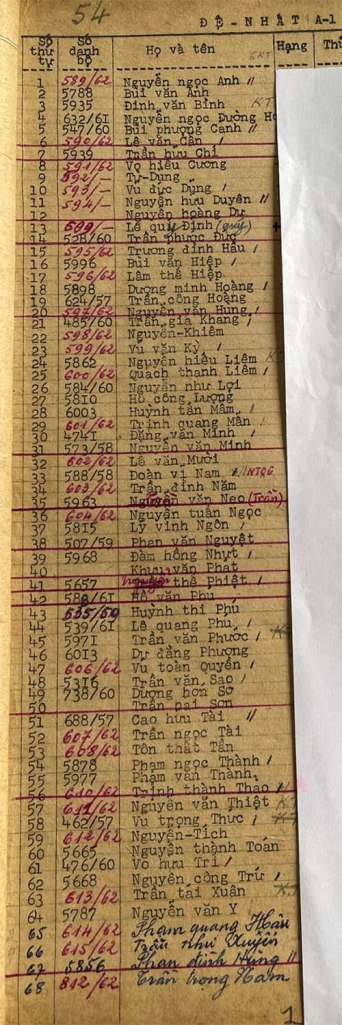 54
ĐỆ-NHẤT A-1
Số thứ tự Số danh bộ Họ và tên Hạng
1 589/62 Nguyễn ngọc Anh "
2 5788 Bùi văn Ánh
3 5935 Đinh văn Bỉnh KT
4 632/61 Nguyễn ngọc Đường
5 547/60 Bùi phượng Canh "
6 590/62 Lê văn Cần
7 5939 Trần hữu Chí
8 591/62 Võ hiếu Cương
9 592/- Tự-Dụng
10 593/- Vũ đức Dụng
11 594/- Nguyễn hữu Duyên "
12 Nguyễn hoàng Dự
13 699/- Lê quý Định (quý)
14 528/60 Trần phước Đức
15 595/62 Trương đình Hầu
16 5996 Bùi văn Hiệp
17 596/62 Lâm thế Hiệp
18 5898 Dương minh Hoàng
19 624/57 Trần công Hoàng
20 597/62 Nguyễn văn Hưng
21 485/60 Trần gia Khang
22 598/62 Nguyễn-Khiêm
23 599/62 Vũ văn Kỳ
24 5862 Nguyễn hiếu Liêm
25 600/62 Quách thanh Liêm
26 584/60 Nguyễn như Lợi
27 5810 Hồ công Lượng
28 6003 Huỳnh tấn Mẫm
29 601/62 Trịnh quang Mân
30 4741 Đặng văn Minh
31 573/58 Nguyễn văn Minh
32 602/62 Lê văn Mười
33 588/58 Đoàn vi Nam NTQG
34 603/62 Trần đình Năm
35 5963 văn Nẹo (Trần)
36 604/62 Nguyễn tuấn Ngọc
37 5815 Lý vinh Ngôn
38 507/59 Phan văn Nguyệt
39 5968 Đàm hồng Nhựt
40 Khưu văn Phát
41 5657 Nguyễn thế Phiệt
42 589/61 Hồ văn Phú
43 535/59 Huỳnh thị Phú
44 539/61 Lê quang Phú
45 5971 Trần văn Phước
46 6013 Dư đăng Phượng
47 606/62 Vũ toàn Quyền
48 5316 Trần văn Sao
49 738/60 Dương hơn Sơ
50 Trần pai Sơn
51 688/57 Cao hữu Tài "
52 607/62 Trần ngọc Tài
53 608/62 Tôn thất Tần
54 5878 Phạm ngọc Thành
55 5977 Phạm văn Thành
56 610/62 Trịnh thành Thao
57 611/62 Nguyễn văn Thiệt
58 462/57 Vũ trọng Thức
59 612/62 Nguyễn-Tích
60 5665 Nguyễn thành Toán
61 476/60 Võ hữu Trí
62 5668 Nguyễn công Trứ
63 613/62 Trần tài Xuân
64 5787 Nguyễn văn Y
65 614/62 Phạm quang Hầu
66 615/62 Trần như Xuyên
67 5856 Phan đình Hùng "
68 812/62 Trần trọng Hàm
1